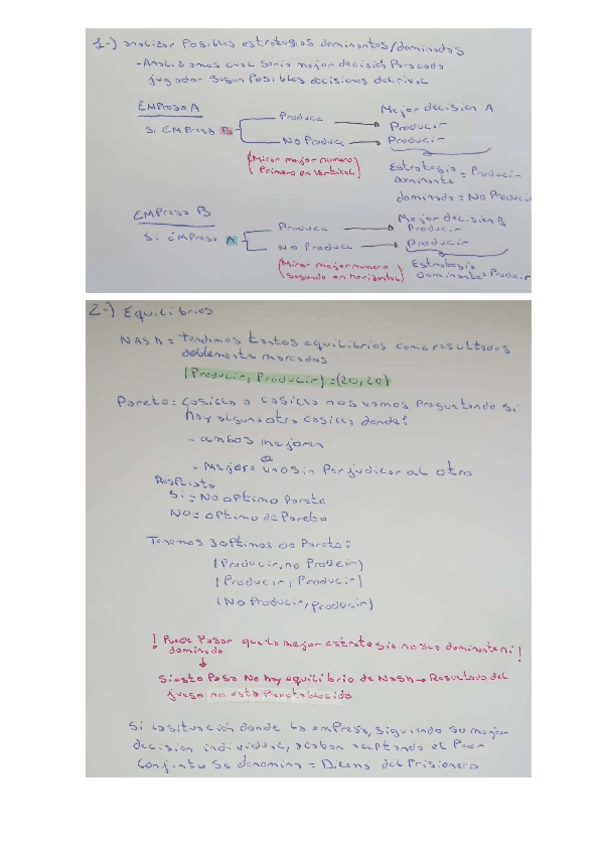 1-) analizar Posibles estrategias dominantes/dominadas
-Analizamos cual seria mejor decisión Para cada
jugador segun Posibles decisiones del rival
EMPresa A
Mejor decision A
Si EMPresa B
Produce → Producir
No Produce → Producir
(Mirar mejor numero
Primero en vertical)
Estrategia
dominante = Producir
dominada = No Producir
EMPresa B
Mejor decision B
Si EMPresa A
Produce → Producir
No Produce → Producir
(Mirar mejor numero
segundo en horizontal)
Estrategia
Dominante = Producir
2-) Equilibrios
NASh = Tendremos tantos equilibrios como resultados
doblemente marcados
(Producir, Producir) = (20,20)
Pareto: casilla a casilla nos vamos Preguntando si
hay alguna otra casilla donde:
- ambos mejoren
o
- Mejore uno sin Perjudicar al otro
Respuesta
Si = No optimo Pareto
No = optimo de Pareto
Tenemos 3 optimos de Pareto:
(Producir, no Producir)
(Producir, Producir)
(No Producir, Producir)
! Puede Pasar que la mejor estrategia no sea dominante ni !
dominada
↓
Si esto Pasa No hay equilibrio de Nash → Resultado del
juego no esta Preestablecido
Si la situación donde la empresa, siguiendo su mejor
decision individual, acaban aceptando el Peor
conjunto se denomina = Dilema del Prisionero